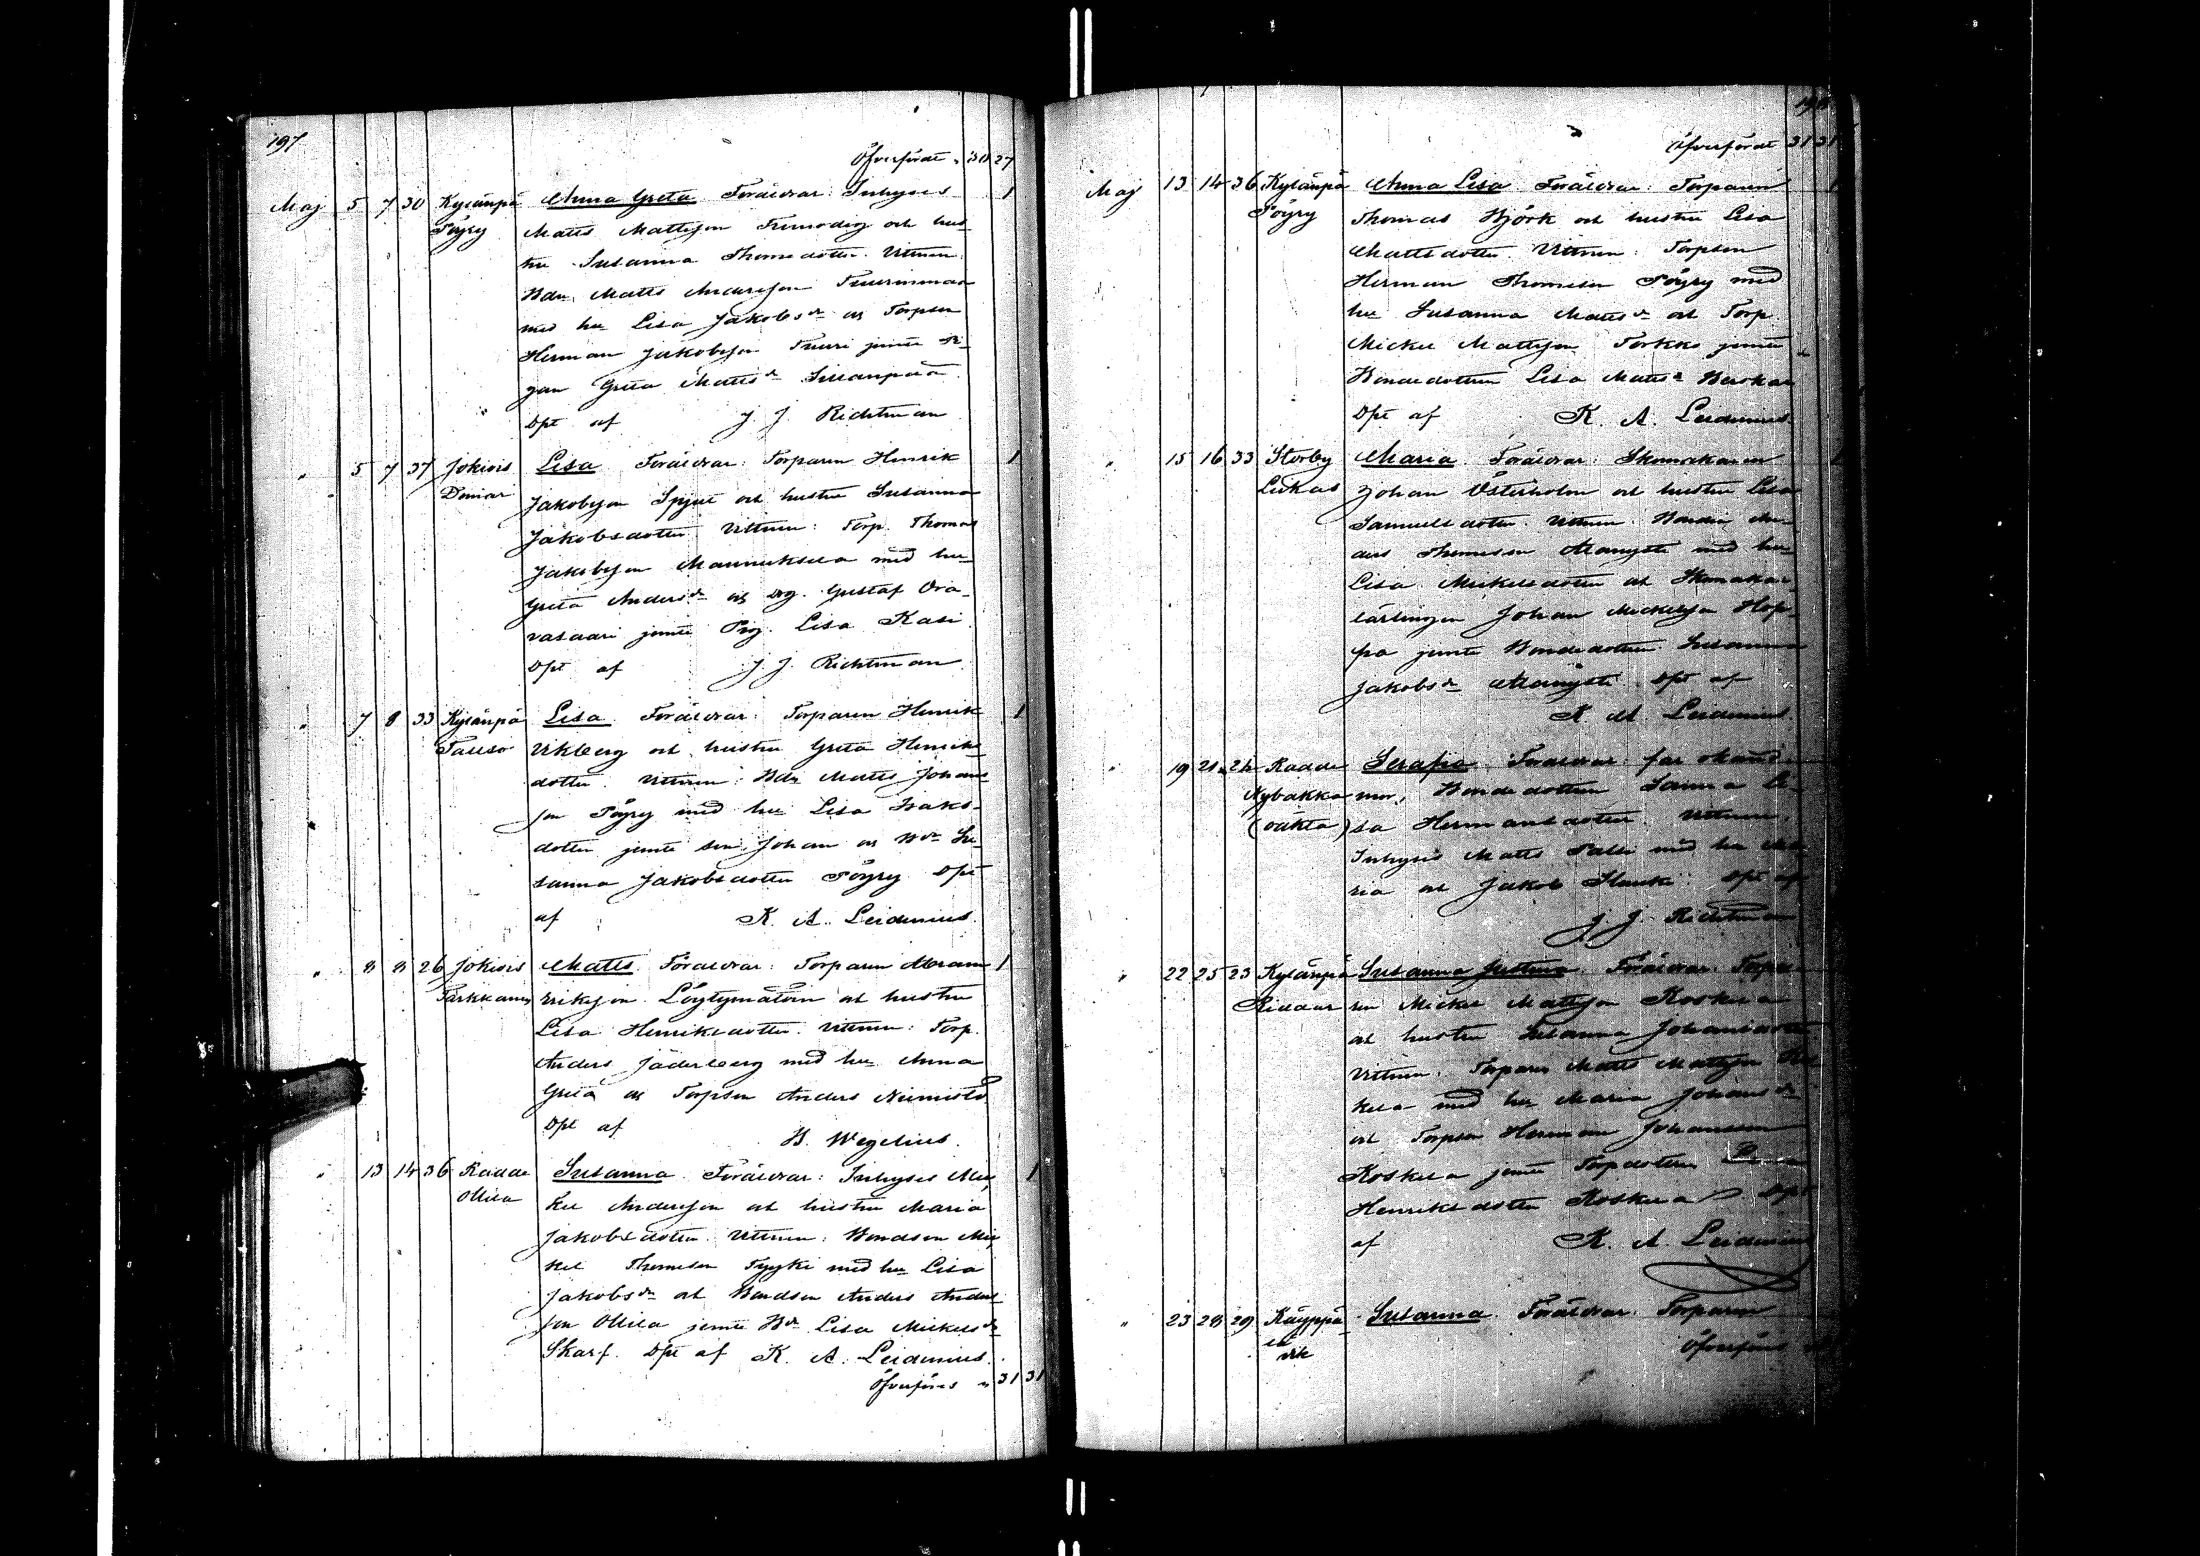 197
Öfverfördt " 30 27
Maj 5 7 30 Kylänpä Anna Greta Föräldrar: Inhyses 1
Töyry Matts Mattsson Tienvdig och hus-
tru Susanna Thomædotter. Vittnen:
Bdn Matts Andersson Tuurinmaa
med hu Lisa Jakobsdr och Torpson
Herman Jakobsson Tuuri jemte Pi-
gan Greta Mattsdr Sillanpää
Döpt af J. J. Richtman
" 5 7 37 Jokivis Lisa Föräldrar: Torparen Henrik 1
Domar Jakobsson Spjut och hustru Susanna
Jakobsdotter Vittnen: Torp. Thomas
Jakobsson Mannuksela med hu
Greta Andersdr och Drg. Gustaf Ora-
vasaari jemte Pig. Lisa Kasi
Döpt af J. J. Richtman
" 7 8 33 Kylänpä Lisa Föräldrar: Torparen Henrik 1
Talso Vikberg och hustru Greta Henriks-
dotter. Vittnen: Bdn Matts Johans-
son Töyry med hu Lisa Isaks-
dotter jemte son Johan och Bdr Su-
sanna Jakobsdotter Töyry Döpt
af K. A. Leidenius.
" 8 8 26 Jokivis Matts. Föräldrar: Torparen Abram 1
Tarkkanen Eriksson Löytymätön och hustru
Lisa Henriksdotter. Vittnen: Torp.
Anders Jäderberg med hu Anna
Greta och Torpson Anders Niemistö
Döpt af
B. Wegelius.
" 13 14 36 Radde Susanna Föräldrar: Inhyses Mic- 1
Ollila kel Andersson och hustru Maria
Jakobsdotter. Vittnen: Bondson Mic-
kel Thomsson Tyyki med hu Lisa
Jakobsdr och Bondson Anders Anders-
son Ollila jemte Bdr Lisa Mickelsdr
Skarf. Döpt af K. A. Leidenius.
Öfverföres " 31 31
198
Öfverfördt 31 31
Maj 13 14 36 Kylänpä Anna Lisa Föräldrar: Torparen 1
Töyry Thomas Björk och hustru Lisa
Mattsdotter. Vittnen: Torpson
Herman Thomsson Töyry med
hu Susanna Mattsdr och Torp.
Mickel Mattsson Torkko jemte
Bondedottren Lisa Mattsdr
Döpt af K. A. Leidenius.
" 15 16 33 Storby Maria Föräldrar: Skomakaren 1
Lukas Johan Österholm och hustru Lisa
Samuelsdotter. Vittnen: Bonden An-
ders Thomsson Mäntystö med hu
Lisa Mickelsdotter och Skomakar-
lärlingen Johan Mickelsson Hop-
pa jemte Bondedottren Susanna
Jakobsdr Mäntystö Döpt af
K. A. Leidenius.
" 19 21 24 Radde Serafia Föräldrar: far okänd
Nybakka mor, Bondedottren Sanna Li-
(oäkta) sa Hermansdotter. Vittnen:
Inhyses Matts Palli med hu Ma-
ria och Jakob Hauki. Döpt af
J. J. Richtman
" 22 25 23 Kylänpä Susanna Justina. Föräldrar: Torpa-
Riddar ren Mickel Mattsson Koskela
och hustru Susanna Johansdotter
Vittnen: Torparen Matts Mattsson Kos-
kela med hu Maria Johansdr
och Torpson Herman Johansson
Koskela jemte Torpdottren
Henriksdotter Koskela Döpt
af K. A. Leidenius
" 23 28 29 Käyppä Susanna Föräldrar: Torparen
Öfverföres